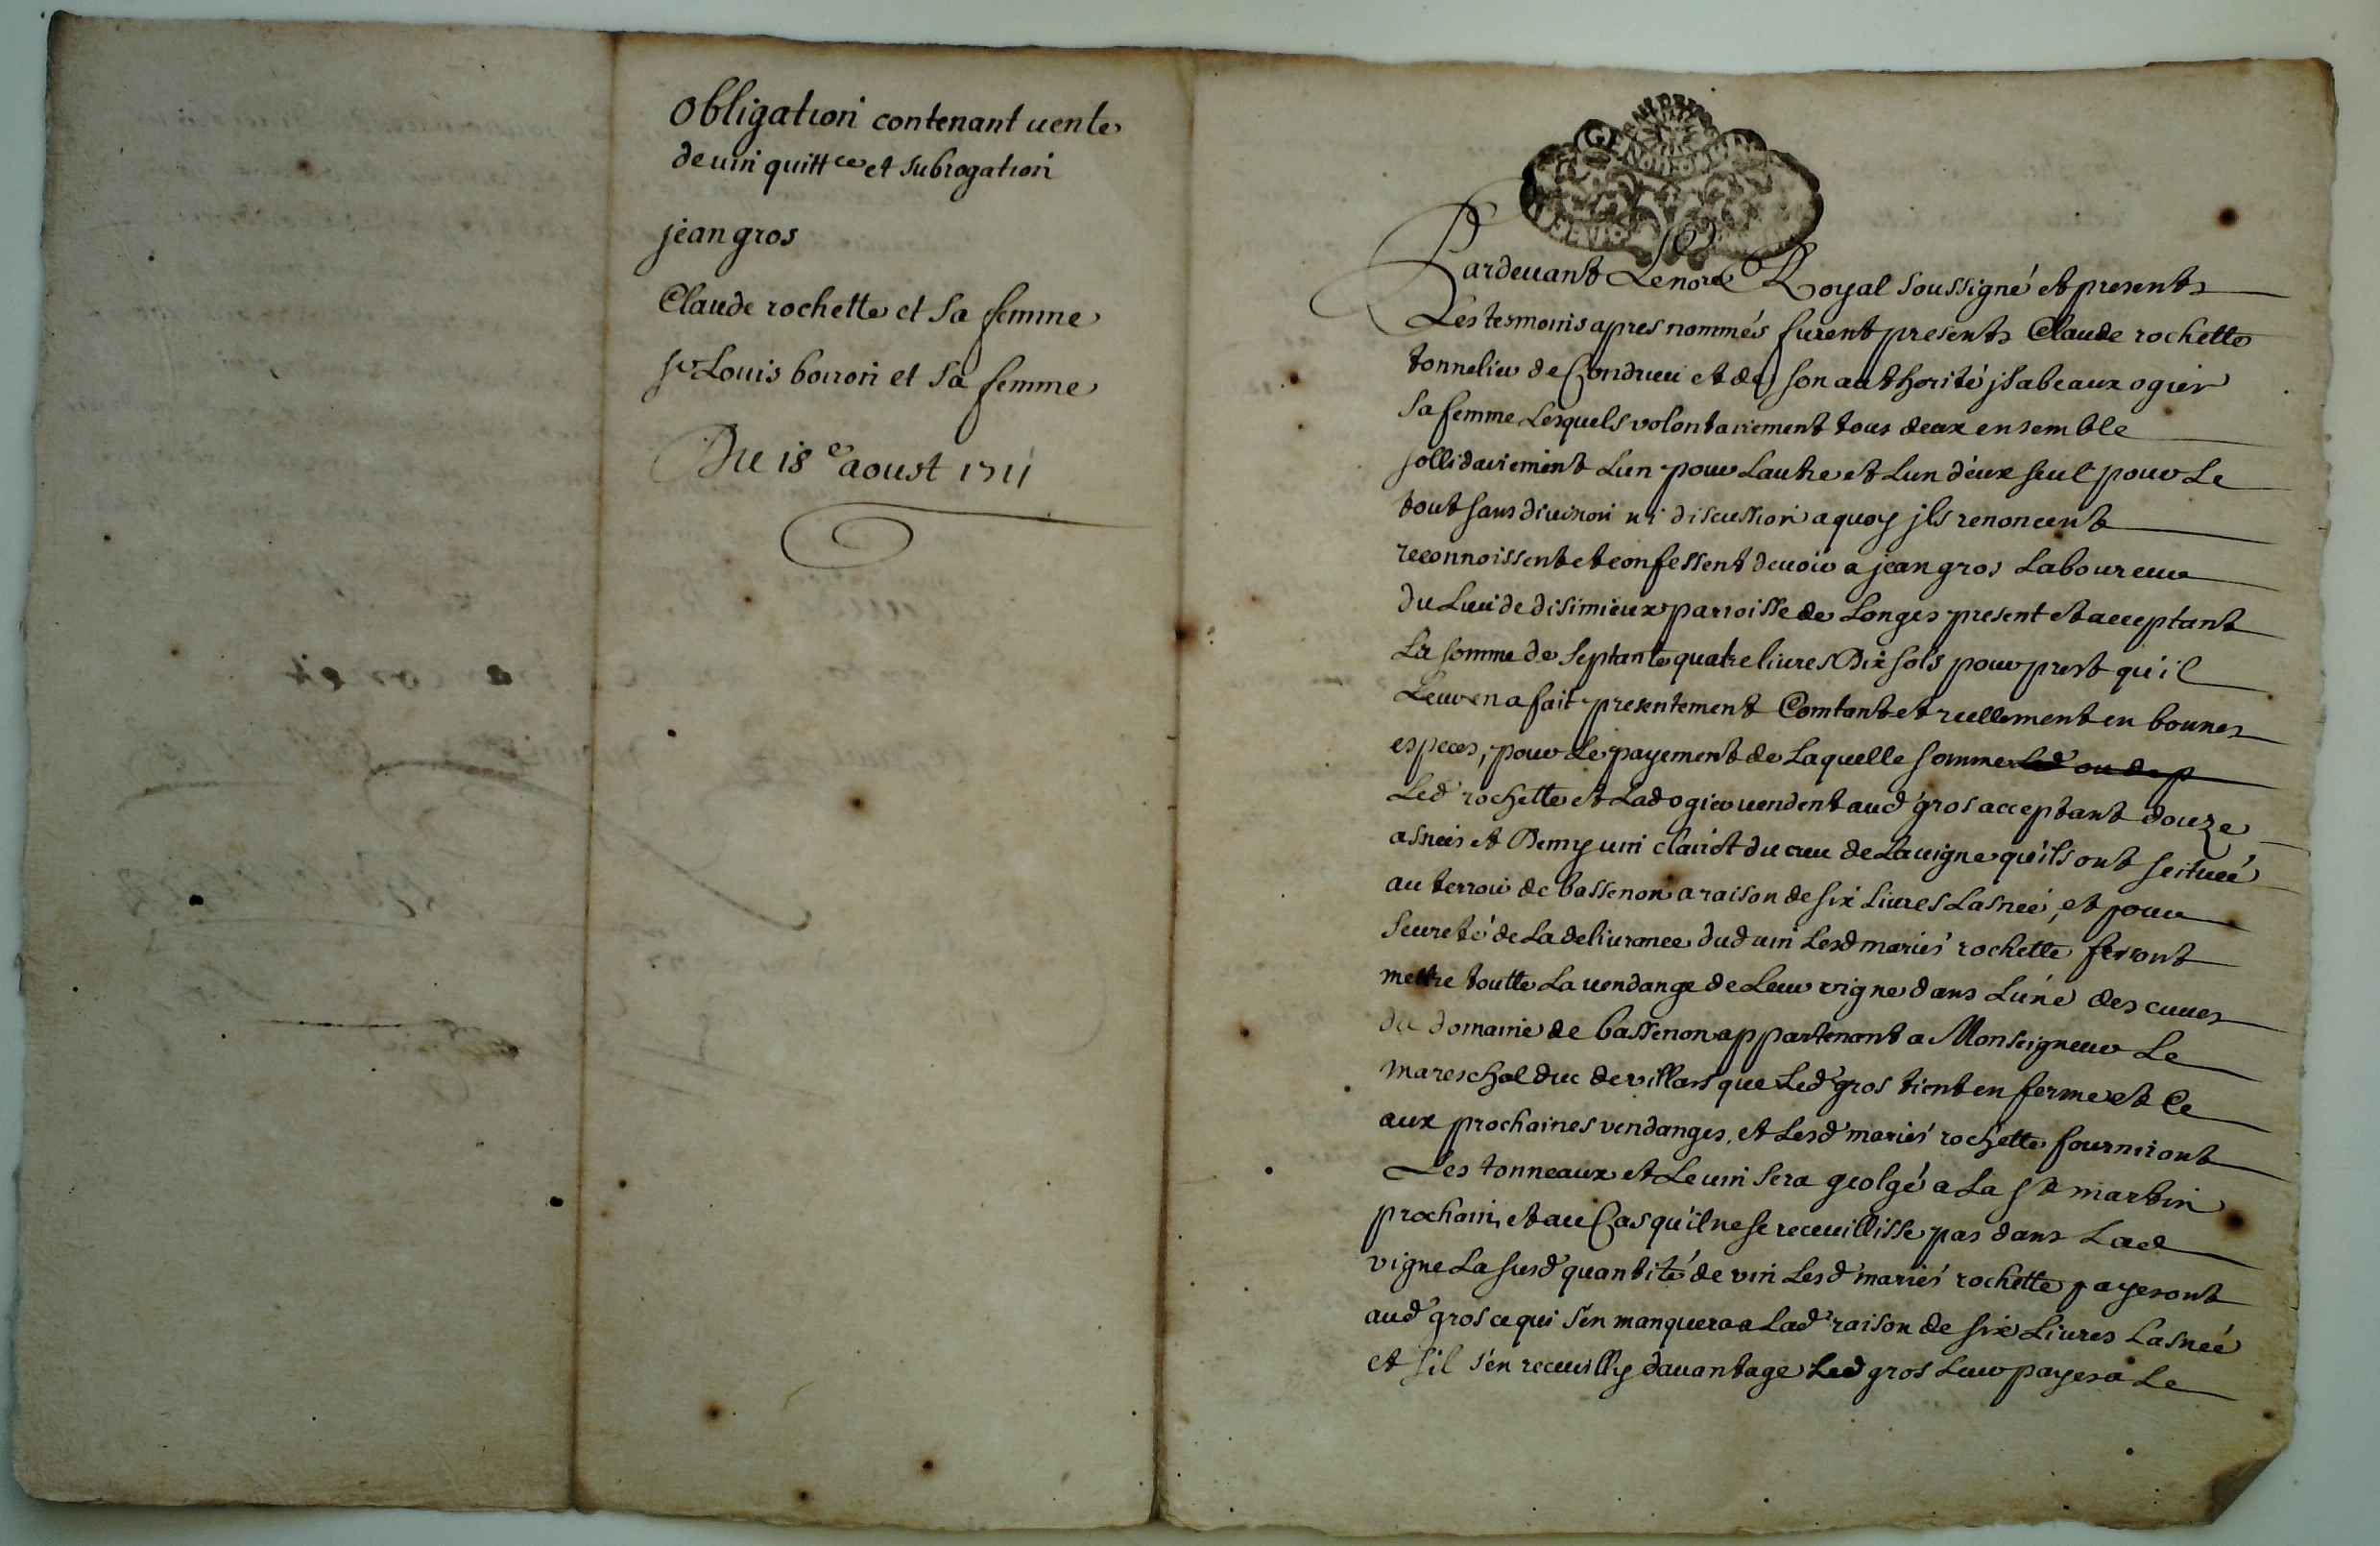 obligation contenant uente
de uin quitt.ce et subrogation
jean gros
Claude rochette et sa femme
sr Louis boiron et sa femme
Du 18e aoust 1711
GEN
Pardeuant Le no.re Royal soussigné et presents
Les tesmoins apres nommés furent presents Claude rochette
tonnelier de Condrieu et de son authorité jsabeaux ogier
sa femme Lesquels volontairement tous deux ensemble
sollidairement Lun pour Lautre et Lun d'eux seul pour Le
tout sans diuision ni discussion a quoy jls renoncent
reconnoissent et confessent deuoir a jean gros Laboureur
du Lieu de disimieux parroisse de Longes present et acceptant
La somme de septante quatre liures Dix sols pour prest qu'il
Leur en a fait presentement Comtant et reellement en bonnes
especes, pour Le payement de Laquelle somme Led ou de p
Led rochette et Lad ogier uendent aud gros acceptant douze
asnées et Demy uin clairet du cru de La uigne qu'ils ont scituée
au terroir de bassenon a raison de six Liures Lasneé, et pour
seureté de La deliurance dud uin Lesd mariés rochette feront
mettre toutte La uendange de Leur vigne dans L'une des cuues
du domaine de bassenon appartenant a Monseigneur Le
mareschal duc de villars que Led gros tient en ferme et Ce
aux prochaines vendanges, et Lesd mariés rochette fourniront
Les tonneaux et Le uin sera geolgé a La St martin
prochain, et au Cas qu'il ne se recueillisse pas dans Lad
vigne La susd quantité de vin Lesd mariés rochette payeront
aud gros ce qui s'en manquera a Lad raison de six Liures Lasneé
et s'il s'en recueilly dauantage Led gros Leur payera Le